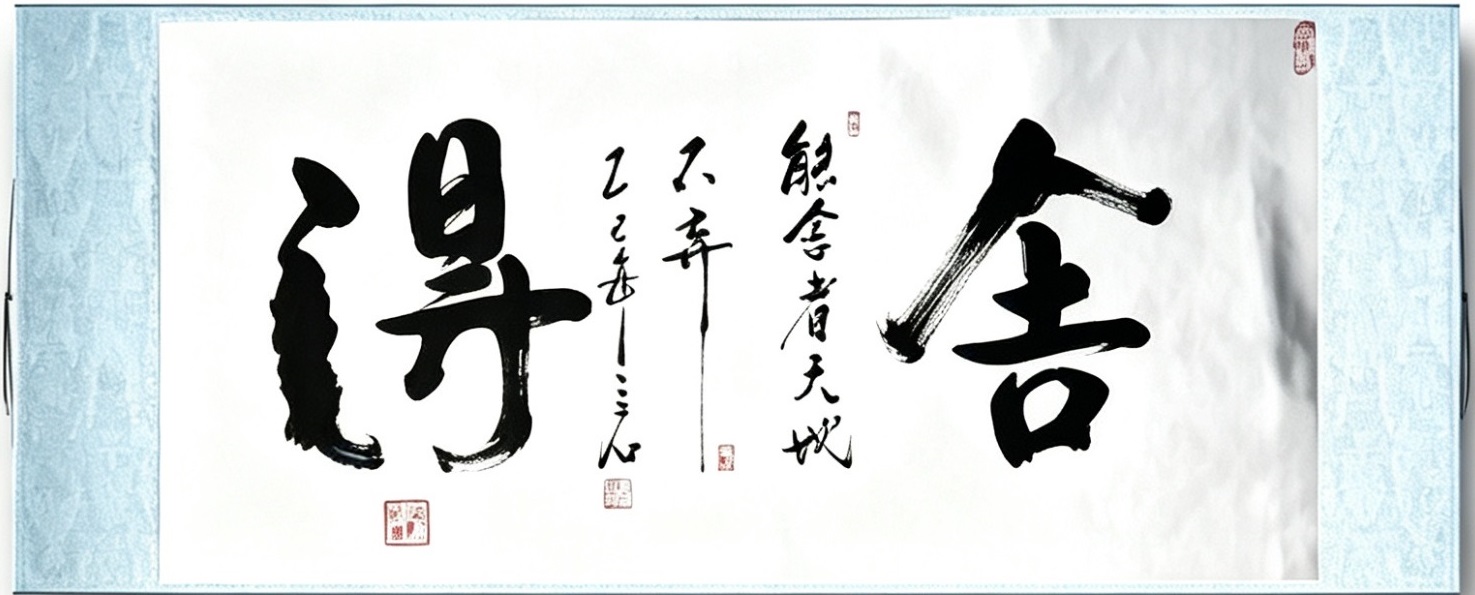 舍
能舍者天地
不弃
乙巳年三石
得